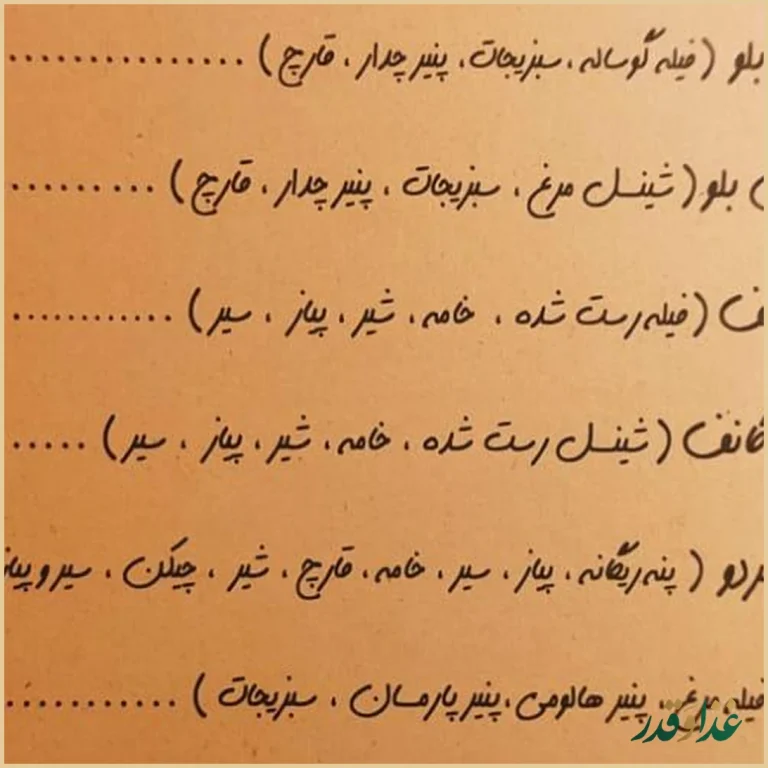 بلو (فیله گوساله، سبزیجات، پنیر چدار، قارچ) ...............
) بلو (شینسل مرغ، سبزیجات، پنیر چدار، قارچ) .........
ف (فیله رست شده، خامه، شیر، پیاز، سیر) ............
انف (شینسل رست شده، خامه، شیر، پیاز، سیر) .....
ردو (پنه ریگاته، پیاز، سیر، خامه، قارچ، شیر، چیکن، سیر و پیاز
فیله مرغ، پنیر هالومی، پنیر پارمسان، سبزیجات) ...........